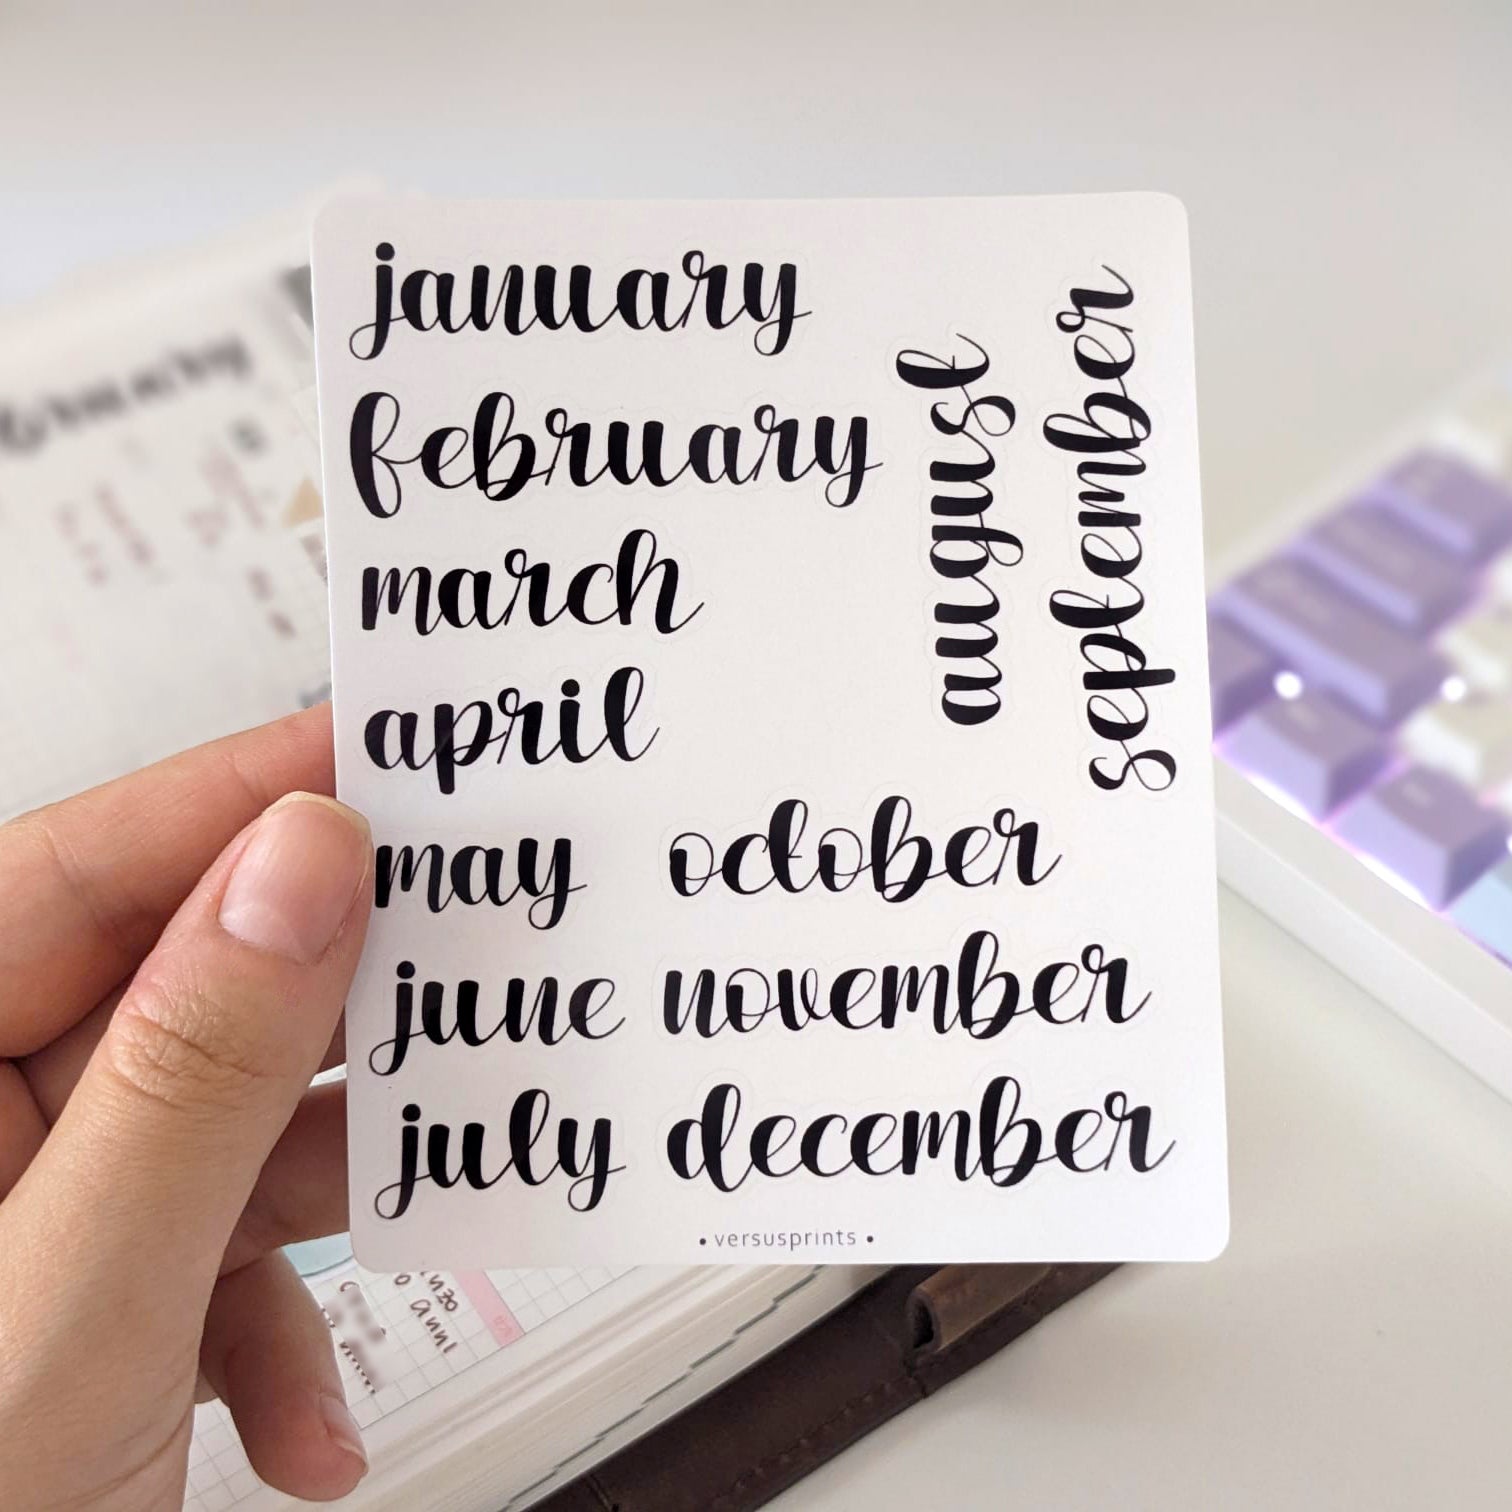 january
february
march
april
may
june
july
august
september
october
november
december
• versusprints •
anni